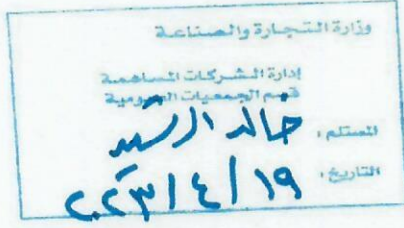 وزارة التجارة والصناعة
إدارة الشركات المساهمة
قسم الجمعيات العمومية
المستلم: خالد الرشيد
التاريخ: ٢٠٢٣/٤/١٩